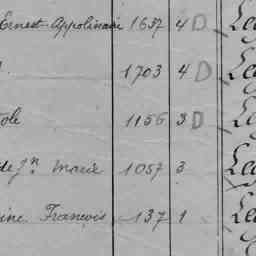 Ernest Appolinaire 1637 4 D Le
1703 4 D Le
ole 1156 3 D Le
de Jn Marie 1057 3 Le
ine François 137 1 Le